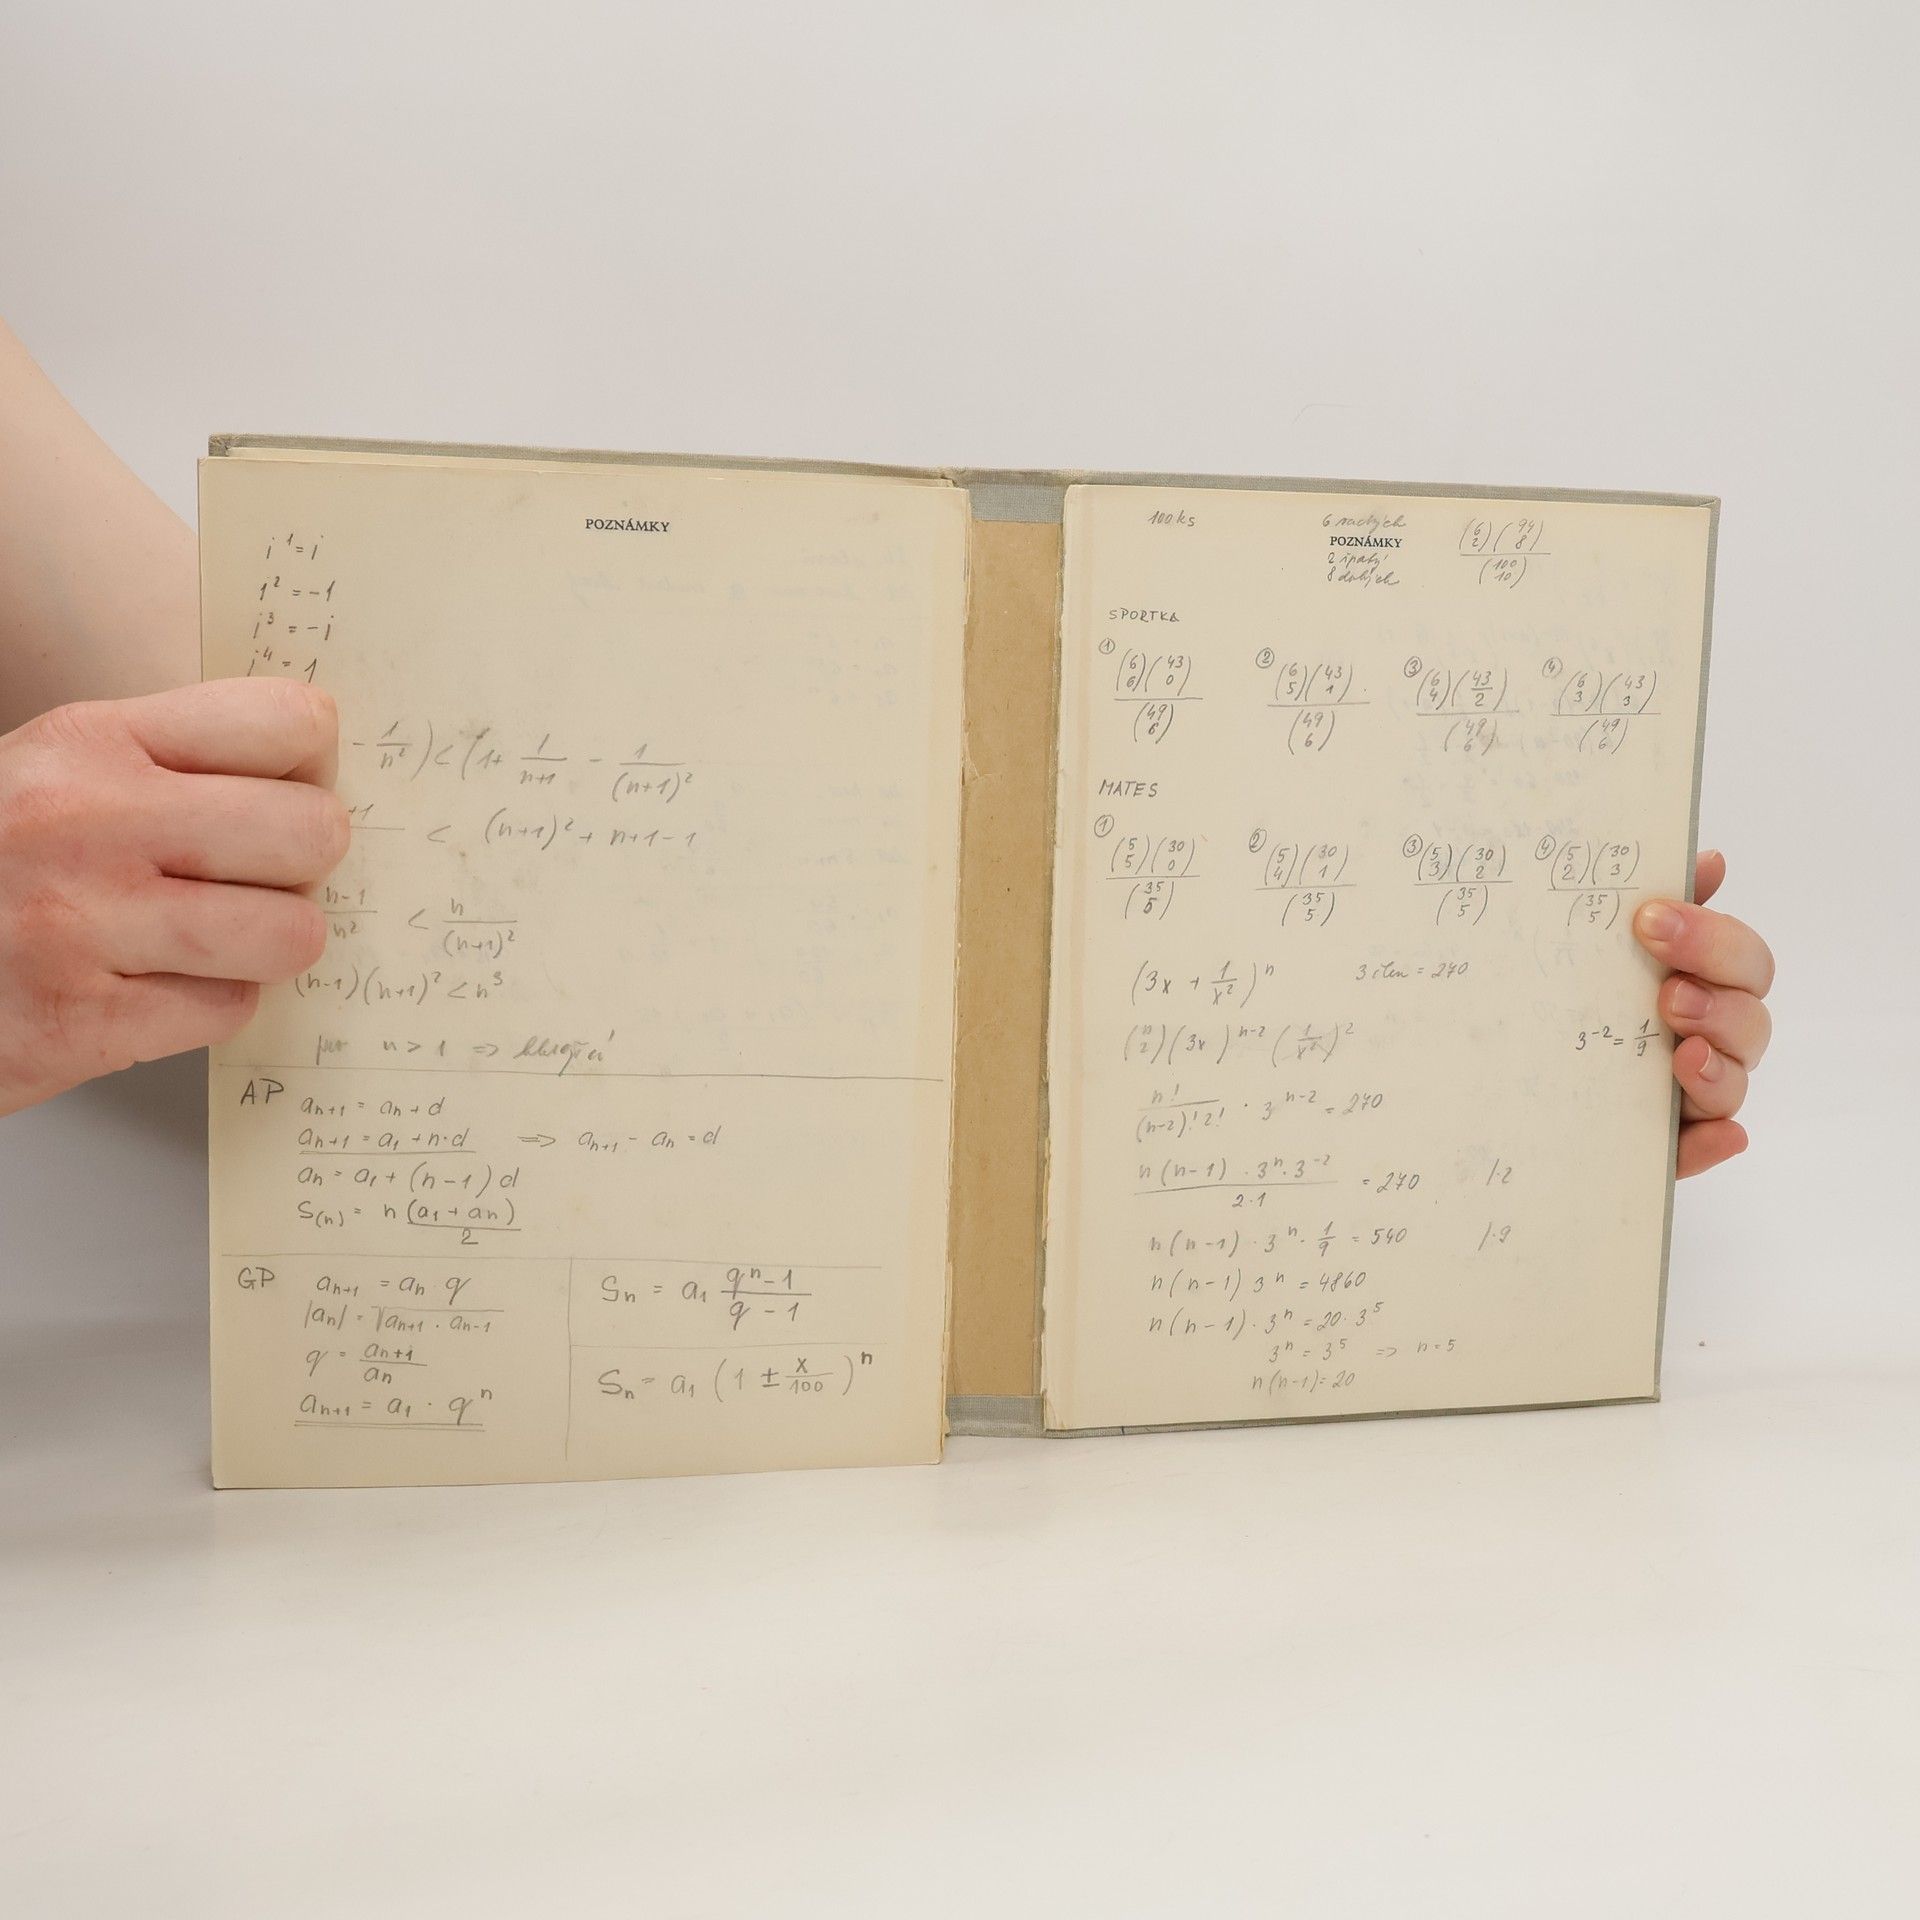 POZNÁMKY
i¹ = i
i² = -1
i³ = -i
i⁴ = 1
- 1/n²) < (1 + 1/(n+1) - 1/(n+1)²
+1 < (n+1)² + n+1-1
(n-1)/n² < n/(n+1)²
(n-1)(n+1)² < n³
pro n > 1 ⇒
AP
aₙ₊₁ = aₙ + d
aₙ₊₁ = a₁ + n·d ⇒ aₙ₊₁ - aₙ = d
aₙ = a₁ + (n-1)d
S(n) = n(a₁ + aₙ)/2
GP
aₙ₊₁ = aₙ · q
|aₙ| = √(aₙ₊₁ · aₙ₋₁)
q = aₙ₊₁/aₙ
aₙ₊₁ = a₁ · qⁿ
Sₙ = a₁ (qⁿ-1)/(q-1)
Sₙ = a₁ (1 ± x/100)ⁿ
100 ks
6
(6 2)(94 8)/(100 10)
POZNÁMKY
2
8 dobrých
SPORTKA
① (6 6)(43 0)/(49 6) ② (6 5)(43 1)/(49 6) ③ (6 4)(43 2)/(49 6) ④ (6 3)(43 3)/(49 6)
MATES
① (5 5)(30 0)/(35 5) ② (5 4)(30 1)/(35 5) ③ (5 3)(30 2)/(35 5) ④ (5 2)(30 3)/(35 5)
(3x + 1/x²)ⁿ 3 člen = 270
(n 2)(3x)ⁿ⁻² (1/x²)² 3⁻² = 1/9
n!/((n-2)! 2!) · 3ⁿ⁻² = 270
n(n-1) · 3ⁿ · 3⁻²/(2·1) = 270 /·2
n(n-1) · 3ⁿ · 1/9 = 540 /·9
n(n-1) 3ⁿ = 4860
n(n-1) · 3ⁿ = 20 · 3⁵
3ⁿ = 3⁵ ⇒ n = 5
n(n-1) = 20